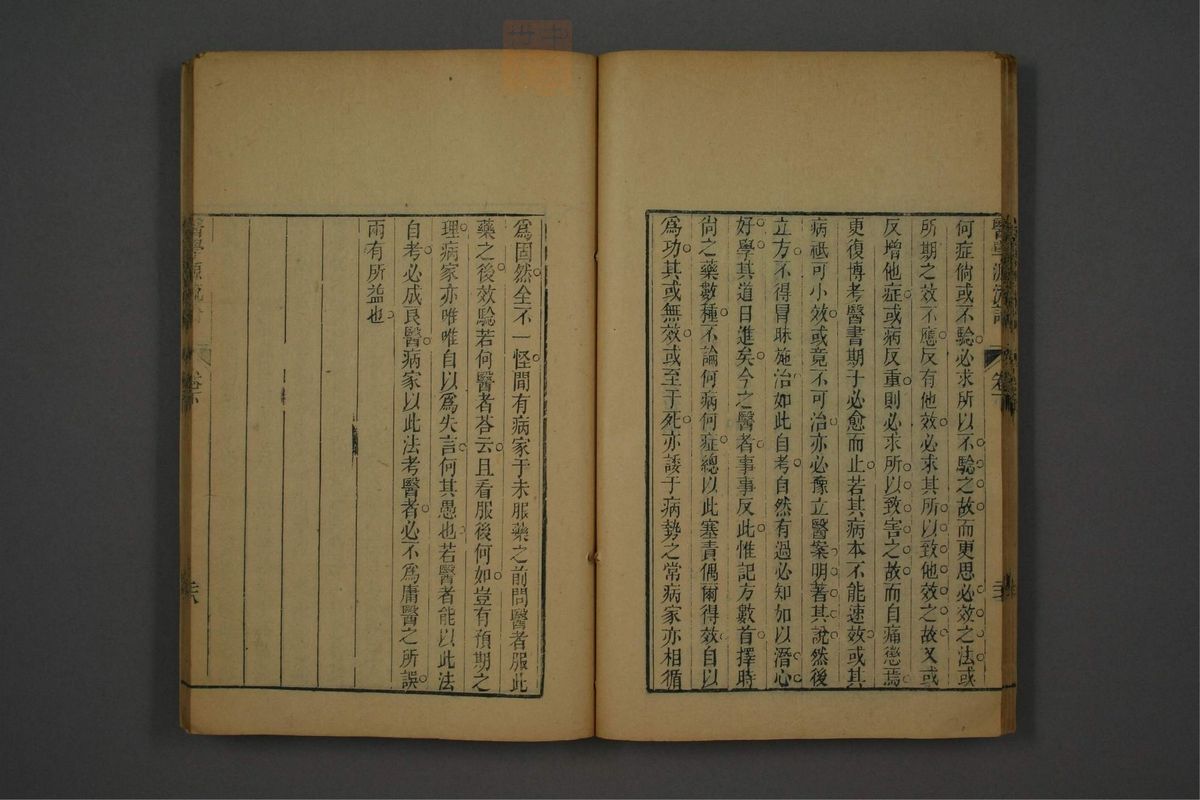 何症倘或不驗必求所以不驗之故而更思必效之法或
所期之效不應反有他效必求其所以致他效之故又或
反增他症或病反重則必求所以致害之故而自痛懲焉
更復博考醫書期于必愈而止若其病本不能速效或其
病祗可小效或竟不可治亦必豫立醫案明著其說然後
立方不得冒昧施治如此自考自然有過必知加以潛心
好學其道日進矣今之醫者事事反此惟記方數首擇時
尚之藥數種不論何病何症總以此塞責偶爾得效自以
爲功其或無效或至于死亦諉于病勢之常病家亦相循
醫學源流論
卷下
爲固然全不一怪間有病家于未服藥之前問醫者服此
藥之後效驗若何醫者荅云且看服後何如豈有預期之
理病家亦唯唯自以爲失言何其愚也若醫者能以此法
自考必成良醫病家以此法考醫者必不爲庸醫之所誤
兩有所益也
醫學源流論
卷下